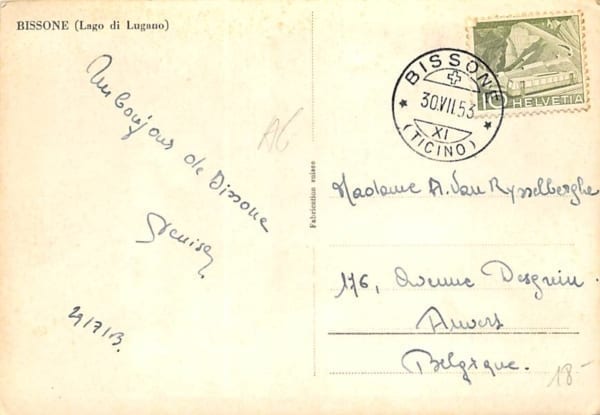 BISSONE (Lago di Lugano)
Un bonjour de Bissone
Denise
29/7/53.
A6
Fabrication suisse
BISSONE
30.VII.53
XI
(TICINO)
10 HELVETIA
Madame A. Van Rysselberghe
176, Avenue Desguin.
Anvers
Belgique.
18-